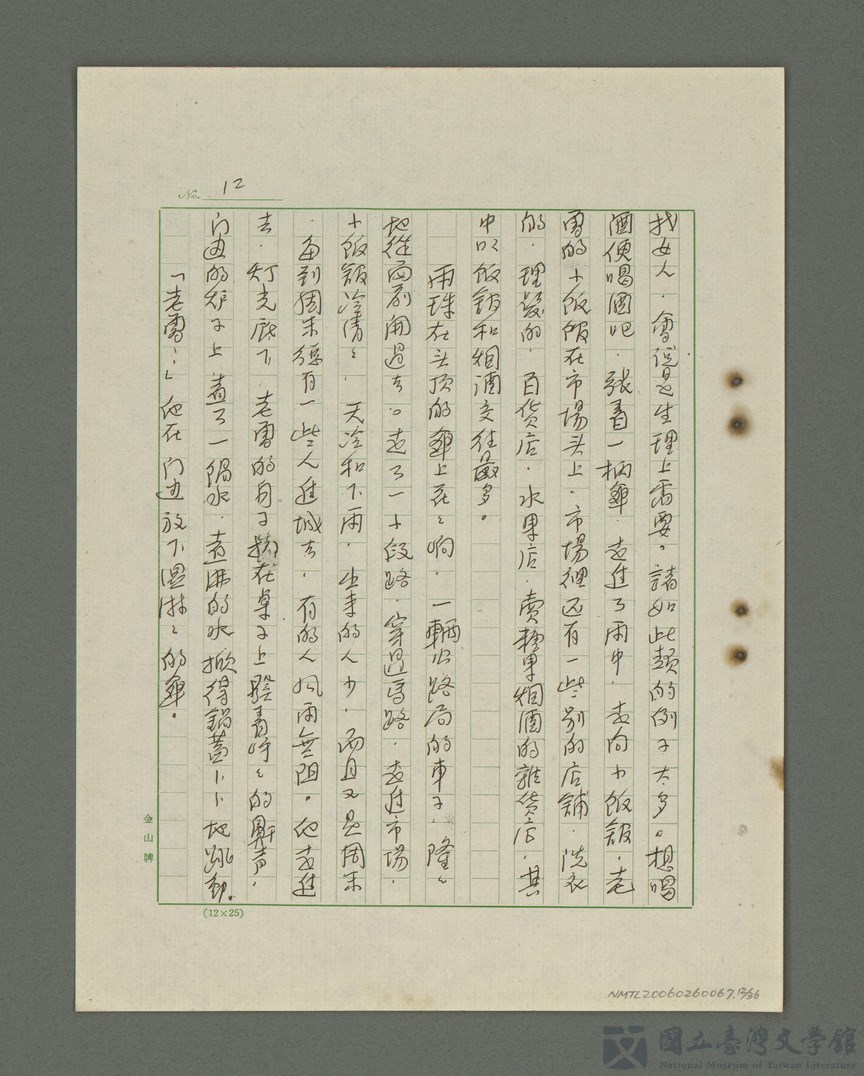 No. 12
找女人，會說是生理上需要。諸如此類的例子太多。想喝
酒便喝酒吧，張着一柄傘，走進了雨中，走向小飯館。老
雷的小飯館在市場头上，市場裡还有一些別的店舖，洗衣
的，理髮的，百貨店，水果店，賣糖果烟酒的雜貨店，其
中以飯館和烟酒交往最多。
雨珠在头頂的傘上花々响，一輛公路局的車子，隆々
地從面前開過去。走了一小段路，穿過馬路，走進市場，
小飯館冷清々，天冷和下雨，出来的人少，而且又是周末
，每到周末總有一些人進城去，有的人風雨無阻。他走進
去，灯光底下，老雷的身子 在桌子上發着呼々的鼾声，
门边的炉子上，煮了一鍋水，煮沸的水掀得鍋蓋卜卜地跳動。
「老雷！」他在门边放下濕淋々的傘。
金山牌
(12×25)
NMTL20060260067,12/36
國立臺灣文學館
National Museum of Taiwan Literature